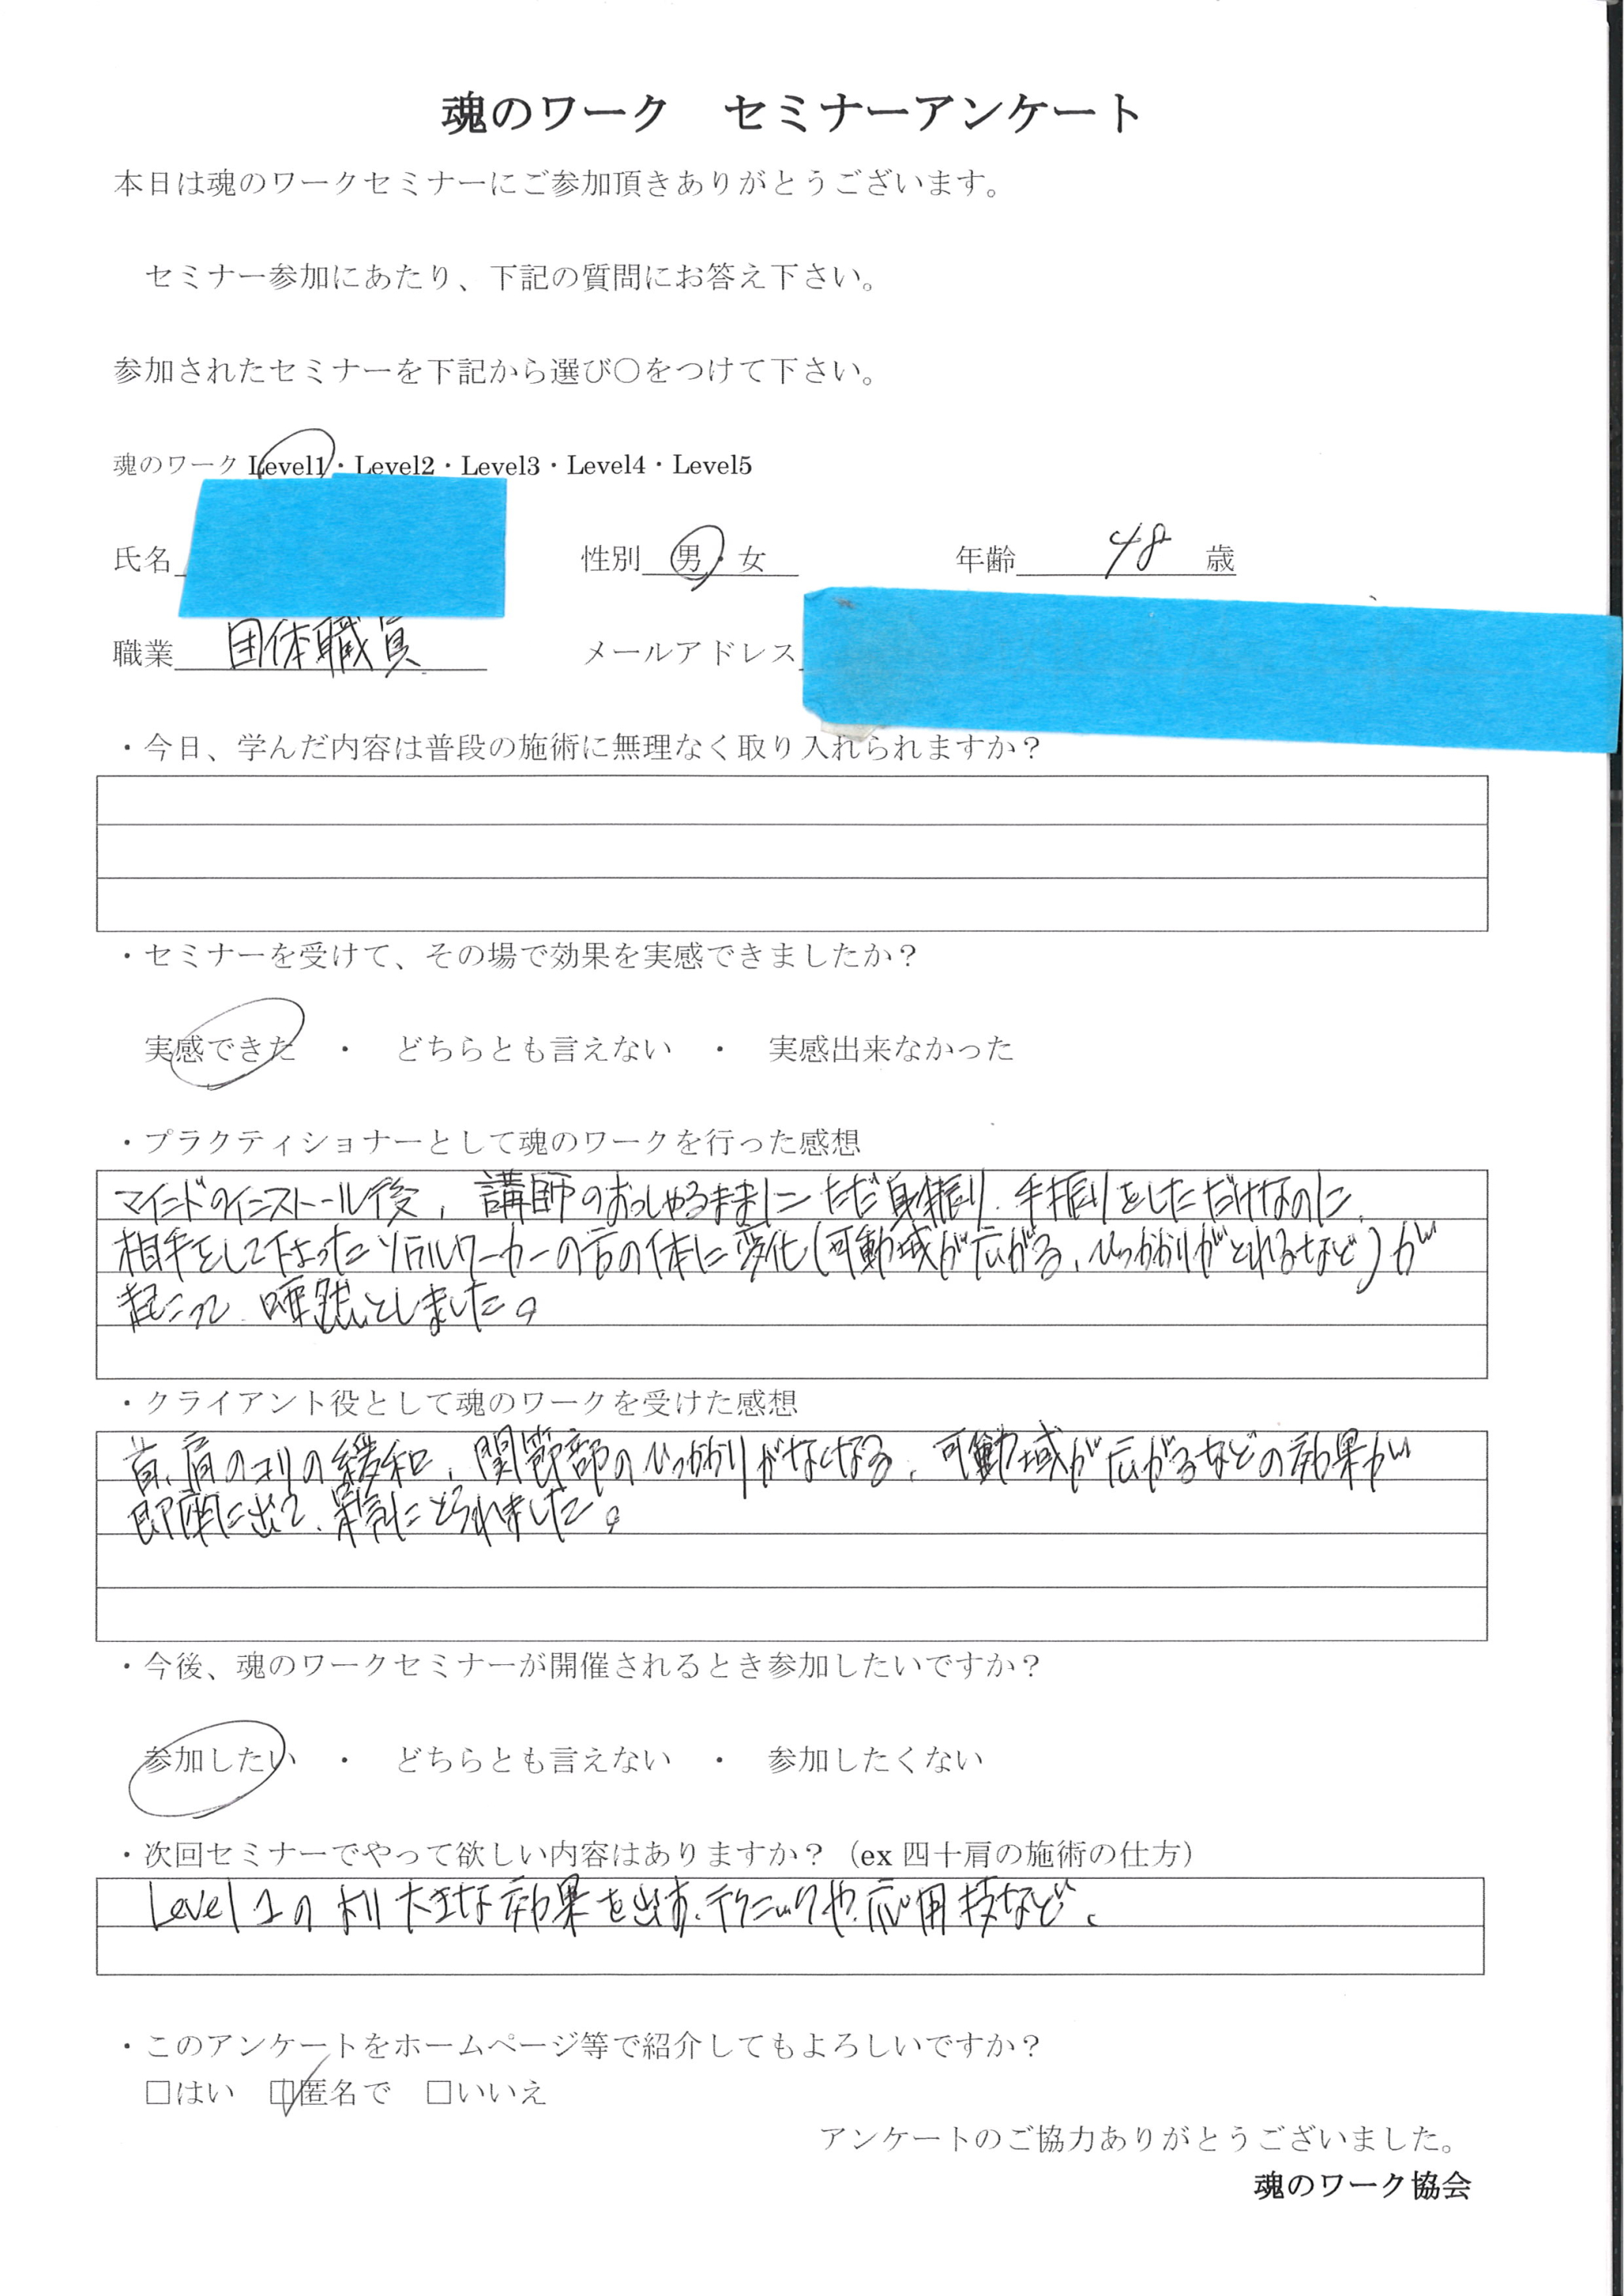 魂のワーク　セミナーアンケート
本日は魂のワークセミナーにご参加頂きありがとうございます。
セミナー参加にあたり、下記の質問にお答え下さい。
参加されたセミナーを下記から選び○をつけて下さい。
魂のワーク Level1・Level2・Level3・Level4・Level5
氏名 性別 男・女 年齢 48 歳
職業 団体職員 メールアドレス
・今日、学んだ内容は普段の施術に無理なく取り入れられますか？
・セミナーを受けて、その場で効果を実感できましたか？
実感できた ・ どちらとも言えない ・ 実感出来なかった
・プラクティショナーとして魂のワークを行った感想
マインドのインストール後、講師のおっしゃるままにただ身振り、手振りをしただけなのに、
相手をして下さったソウルワーカーの方の体に変化(可動域が広がる、ひっかかりがとれるなど)が
起こって、唖然としました。
・クライアント役として魂のワークを受けた感想
首、肩のコリの緩和、関節部のひっかかりがなくなる、可動域が広がるなどの効果が
即座に出て、呆気にとられました。
・今後、魂のワークセミナーが開催されるとき参加したいですか？
参加したい ・ どちらとも言えない ・ 参加したくない
・次回セミナーでやって欲しい内容はありますか？（ex 四十肩の施術の仕方）
Level 1の より大きな効果を出す、テクニックや、応用技など、
・このアンケートをホームページ等で紹介してもよろしいですか？
□はい □匿名で □いいえ
アンケートのご協力ありがとうございました。
魂のワーク協会